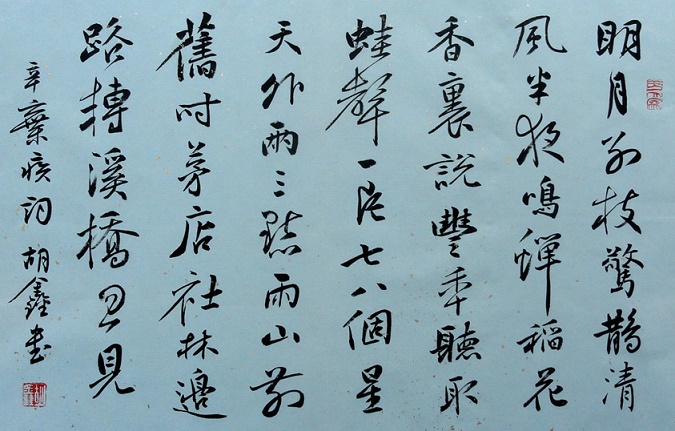 明月别枝驚鵲清
風半夜鳴蟬稻花
香裏說豐年聽取
蛙聲一片七八個星
天外兩三點雨山前
舊时茅店社林邊
路轉溪橋忽見
辛棄疾詞 胡鑫書